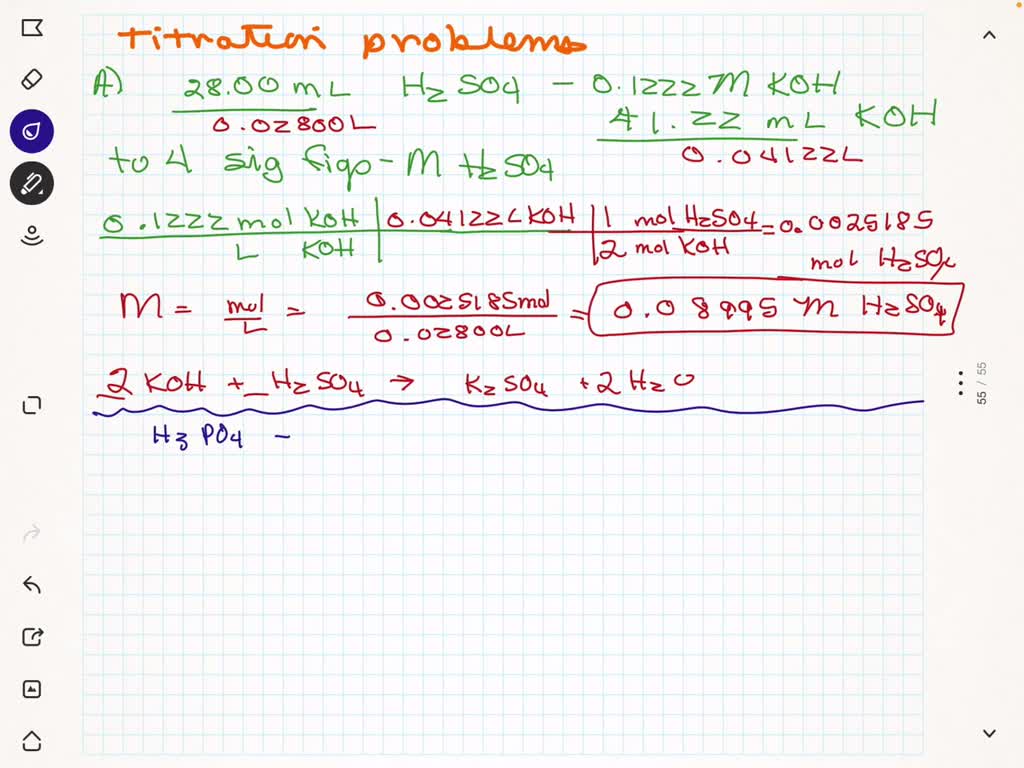 titration problems
A) 28.00 mL H2SO4 - 0.1222 M KOH
0.02800L 41.22 mL KOH
0.04122L
to 4 sig figs - M H2SO4
0.1222 mol KOH | 0.04122 L KOH | 1 mol H2SO4 = 0.0025185
L KOH | 2 mol KOH mol H2SO4
M = mol/L = 0.0025185mol / 0.02800L = 0.08995 M H2SO4
2 KOH + _ H2SO4 → K2SO4 + 2 H2O
H3PO4 -
55 / 55